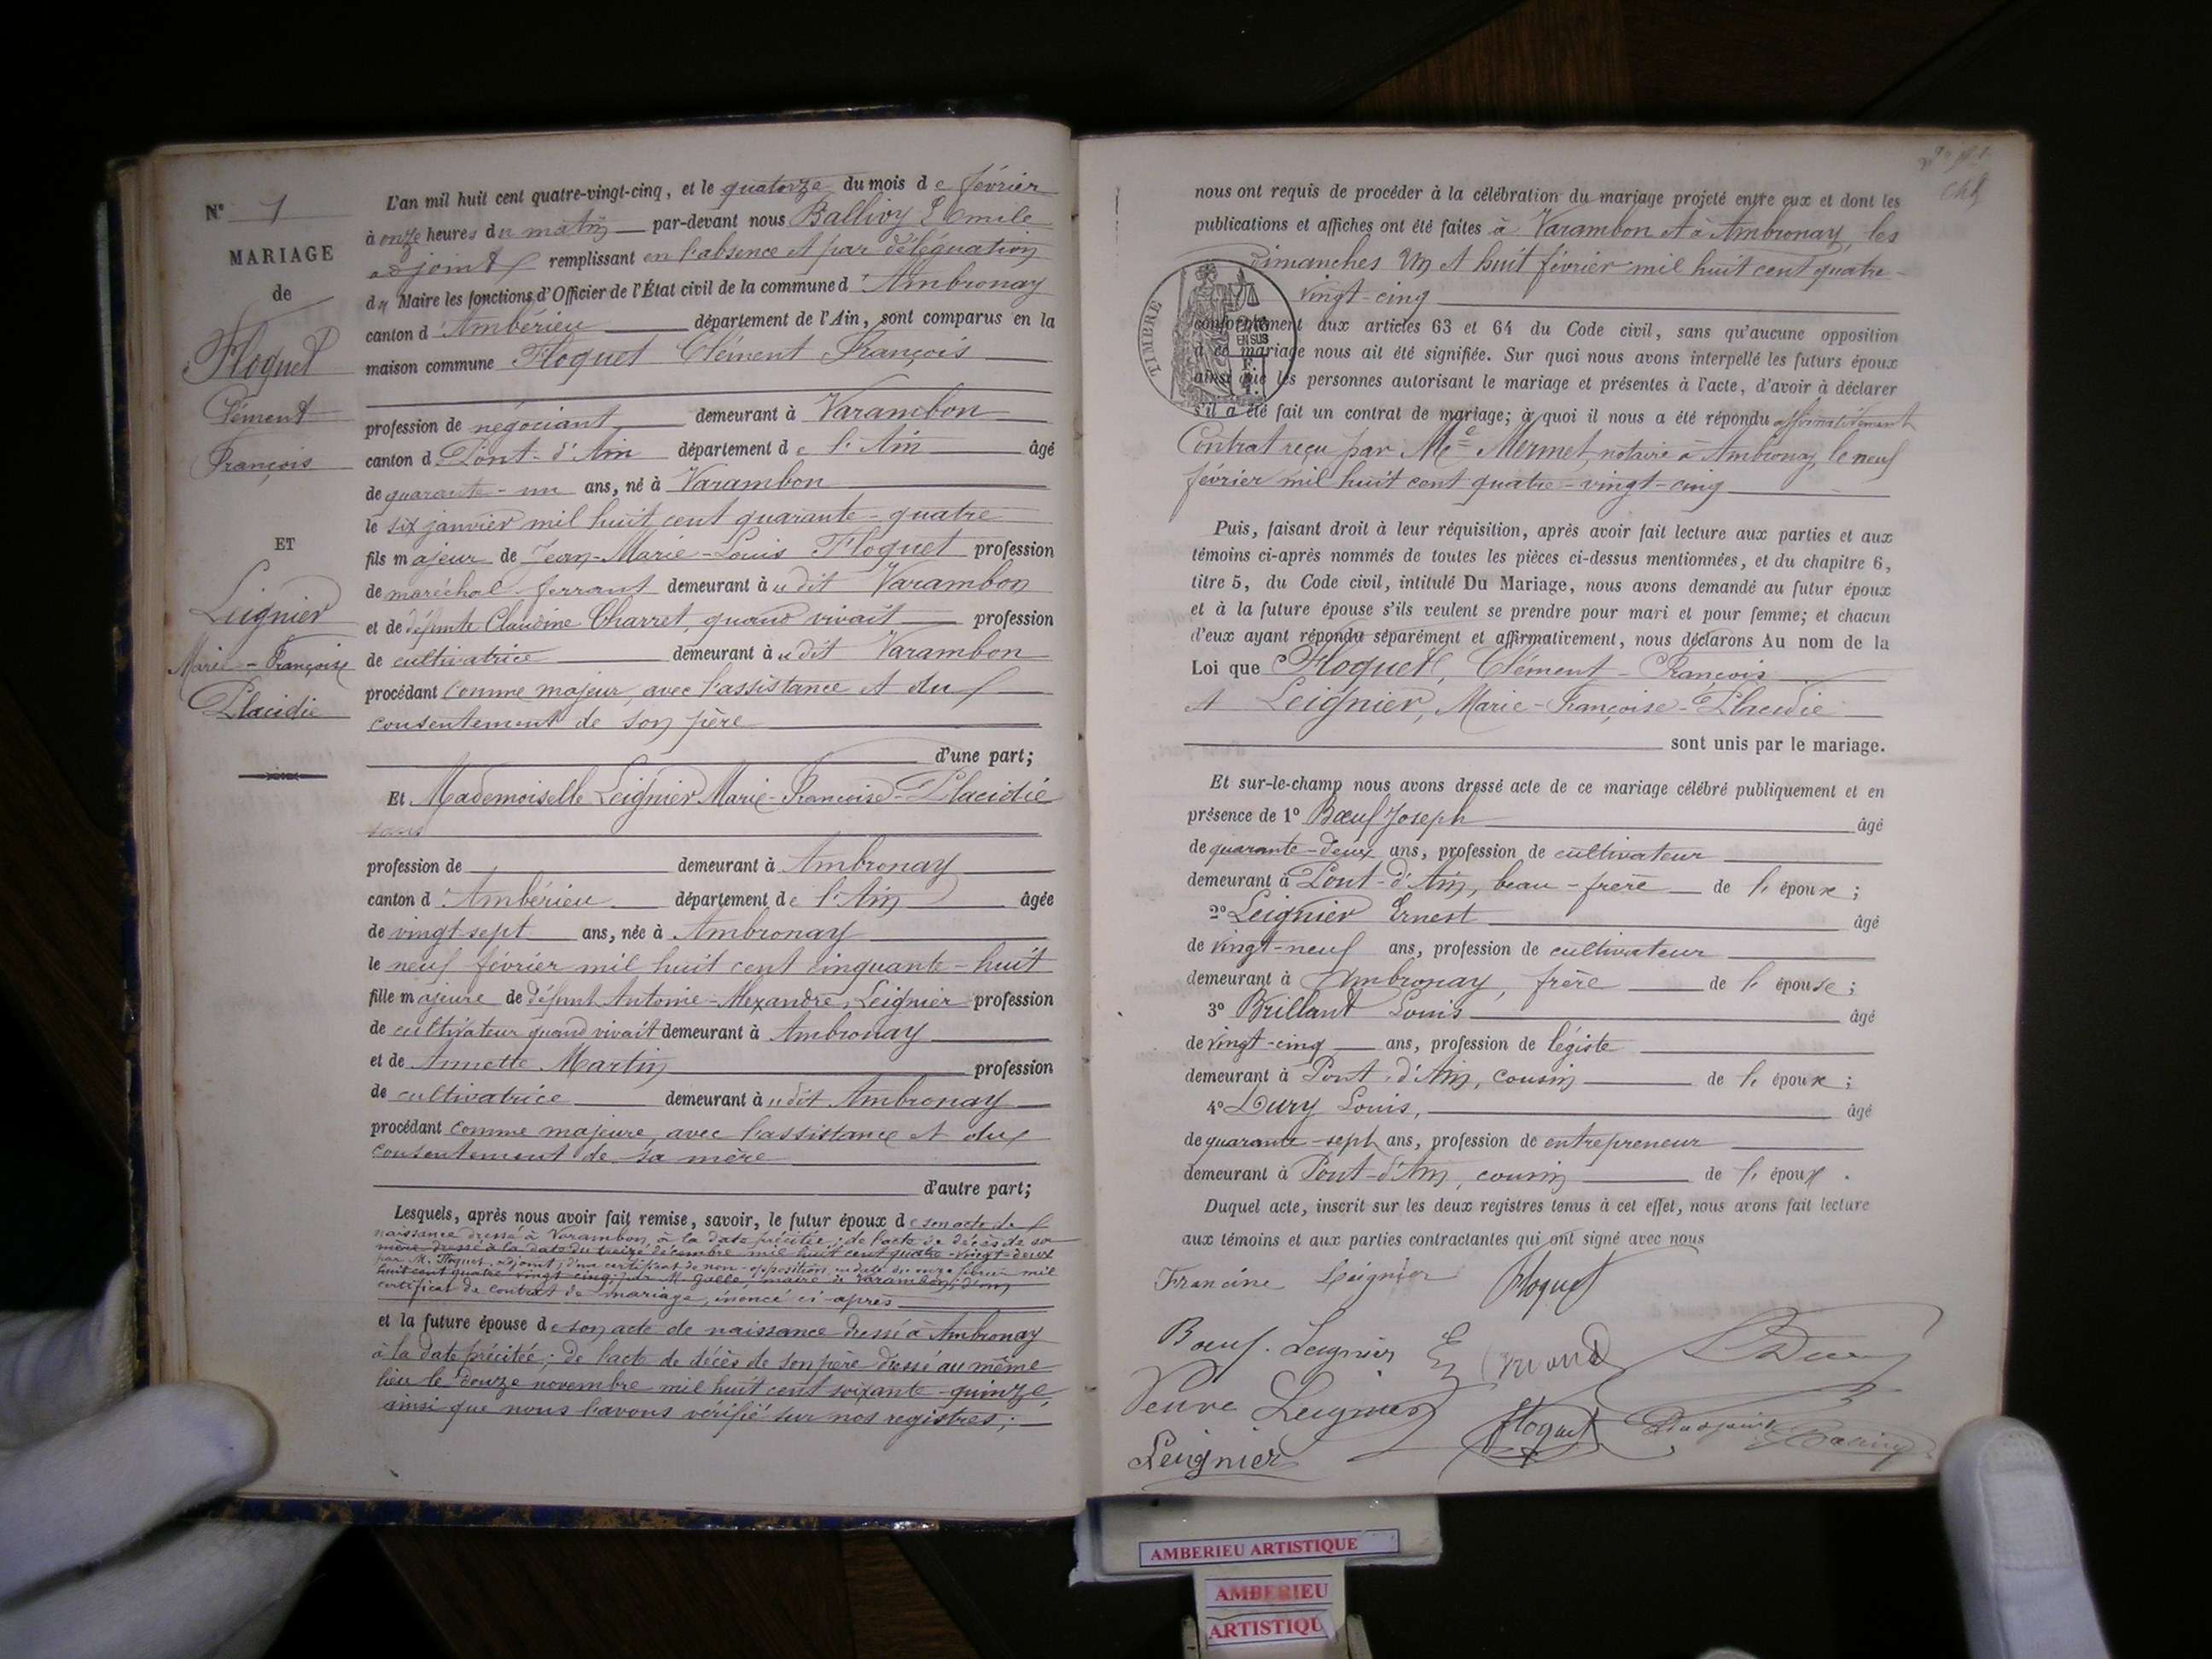 N° 1
MARIAGE
de
Floquet
Clément
François
ET
Leignier
Marie-Françoise
Placidie
L'an mil huit cent quatre-vingt-cinq, et le quatorze du mois de février
à onze heures du matin par-devant nous Ballivy Emile
adjoint remplissant en l'absence et par délégation
du Maire les fonctions d'Officier de l'État civil de la commune d'Ambronay
canton d'Ambérieu département de l'Ain, sont comparus en la
maison commune Floquet Clément François
profession de négociant demeurant à Varambon
canton d Pont-d'Ain département de l'Ain âgé
de quarante-un ans, né à Varambon
le six janvier mil huit cent quarante-quatre
fils majeur de Jean-Marie-Louis Floquet profession
de maréchal-ferrant demeurant audit Varambon
et de défunte Claudine Charret, quand vivait profession
de cultivatrice demeurant audit Varambon
procédant comme majeur, avec l'assistance et du
consentement de son père
d'une part;
Et Mademoiselle Leignier Marie-Françoise-Placidie
sans
profession de demeurant à Ambronay
canton d'Ambérieu département de l'Ain âgée
de vingt-sept ans, née à Ambronay
le neuf février mil huit cent cinquante-huit
fille majeure de défunt Antoine-Alexandre Leignier profession
de cultivateur quand vivait demeurant à Ambronay
et de Annette Martin profession
de cultivatrice demeurant audit Ambronay
procédant comme majeure, avec l'assistance et du
consentement de sa mère
d'autre part;
Lesquels, après nous avoir fait remise, savoir, le futur époux de son acte de
naissance dressé à Varambon, à la date précitée; de l'acte de décès de sa
mère dressé à la date du treize décembre mil huit cent quatre-vingt-deux
par M. Floquet, adjoint; d'un certificat de non-opposition en date du onze février mil
huit cent quatre-vingt-cinq, par M. Gallé, maire à Varambon; d'un
certificat de contrat de mariage, énoncé ci-après
et la future épouse de son acte de naissance dressé à Ambronay
à la date précitée; de l'acte de décès de son père dressé au même
lieu le douze novembre mil huit cent soixante-quinze,
ainsi que nous l'avons vérifié sur nos registres;
nous ont requis de procéder à la célébration du mariage projeté entre eux et dont les
publications et affiches ont été faites à Varambon et à Ambronay, les
dimanches un et huit février mil huit cent quatre-
vingt-cinq
TIMBRE
2/10 EN SUS
conformément aux articles 63 et 64 du Code civil, sans qu'aucune opposition
à ce mariage nous ait été signifiée. Sur quoi nous avons interpellé les futurs époux
ainsi que les personnes autorisant le mariage et présentes à l'acte, d'avoir à déclarer
s'il a été fait un contrat de mariage; à quoi il nous a été répondu affirmativement
Contrat reçu par Me Mermet, notaire à Ambronay, le neuf
février mil huit cent quatre-vingt-cinq
Puis, faisant droit à leur réquisition, après avoir fait lecture aux parties et aux
témoins ci-après nommés de toutes les pièces ci-dessus mentionnées, et du chapitre 6,
titre 5, du Code civil, intitulé Du Mariage, nous avons demandé au futur époux
et à la future épouse s'ils veulent se prendre pour mari et pour femme; et chacun
d'eux ayant répondu séparément et affirmativement, nous déclarons Au nom de la
Loi que Floquet, Clément-François
et Leignier, Marie-Françoise-Placidie
sont unis par le mariage.
Et sur-le-champ nous avons dressé acte de ce mariage célébré publiquement et en
présence de 1° Bœuf Joseph âgé
de quarante-deux ans, profession de cultivateur
demeurant à Pont-d'Ain, beau-frère de l'époux;
2° Leignier Ernest âgé
de vingt-neuf ans, profession de cultivateur
demeurant à Ambronay, frère de l'épouse;
3° Brillant Louis âgé
de vingt-cinq ans, profession de légiste
demeurant à Pont-d'Ain, cousin de l'époux;
4° Dury Louis, âgé
de quarante-sept ans, profession de entrepreneur
demeurant à Pont-d'Ain, cousin de l'époux.
Duquel acte, inscrit sur les deux registres tenus à cet effet, nous avons fait lecture
aux témoins et aux parties contractantes qui ont signé avec nous
Francine Leignier Floquet
Bœuf. Leignier E
Veuve Leignier Floquet
Leignier
AMBERIEU ARTISTIQUE
AMBERIEU
ARTISTIQU